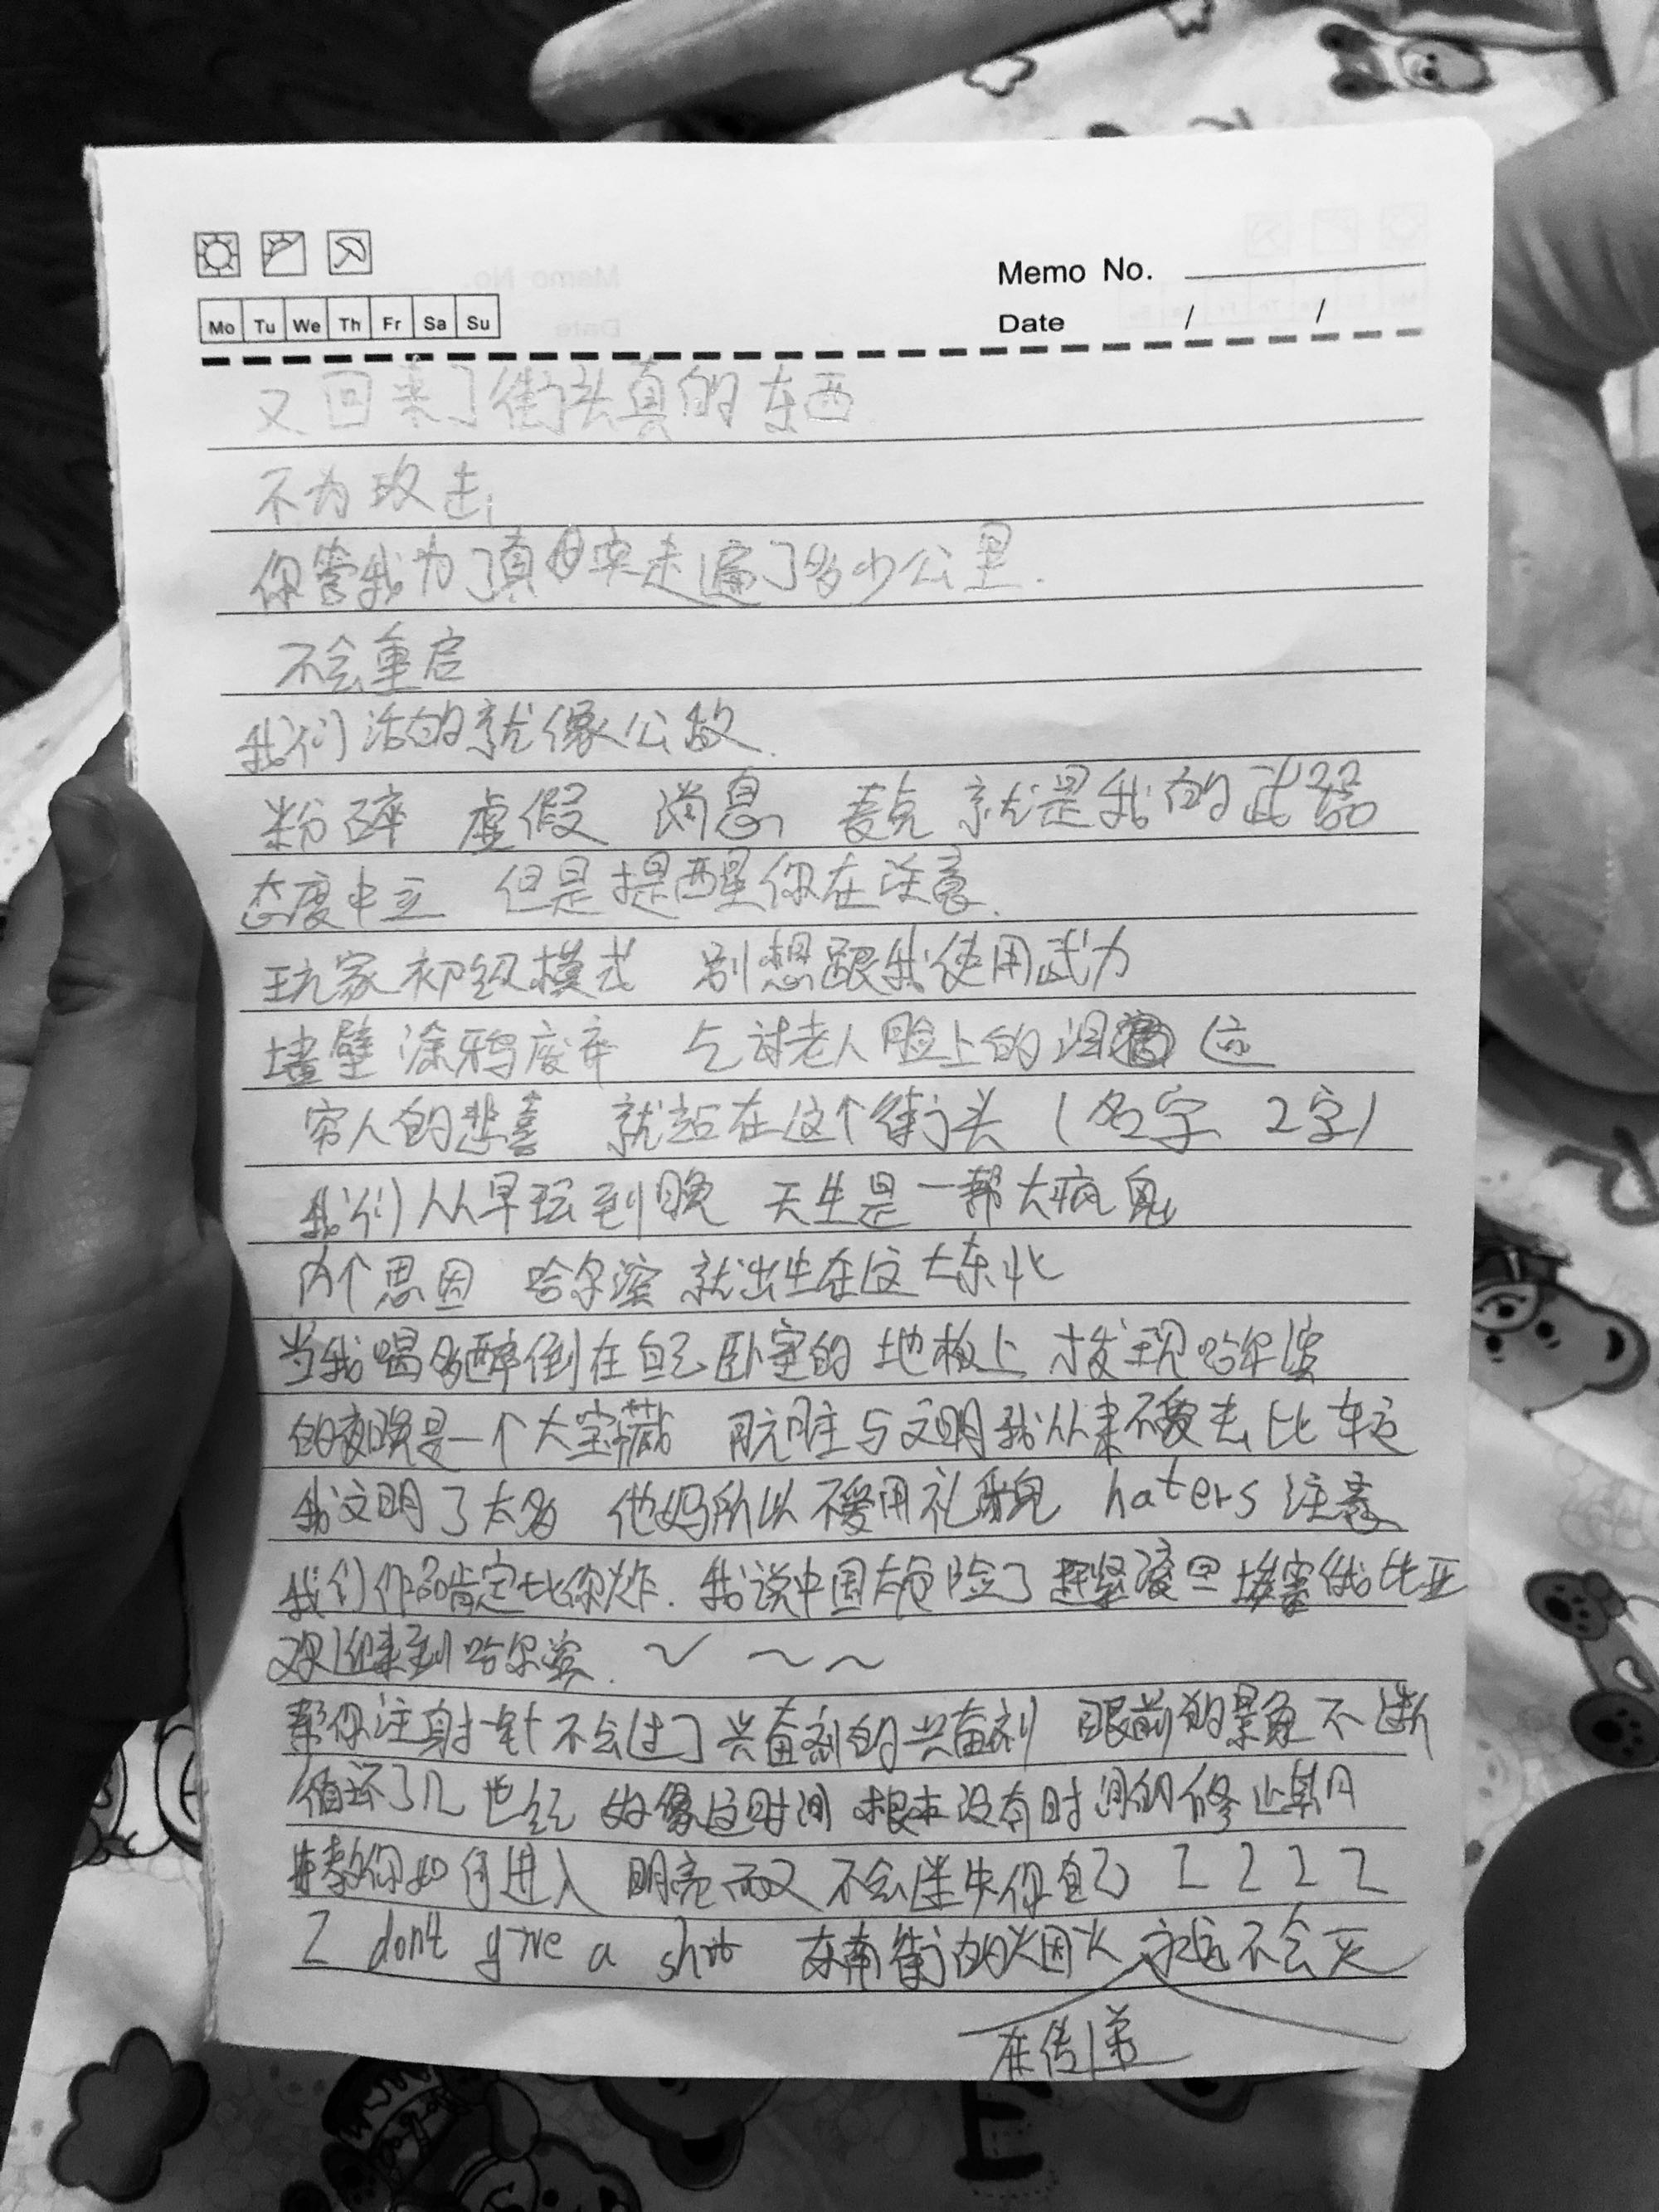 Memo No.
Mo Tu We Th Fr Sa Su
Date / /
又回来了街头真的东西
不为攻击
你管我为了真走遍了多少公里.
不会重启
我们活的就像公敌.
粉碎 虚假 消息 麦克 就是我的武器
态度中立 但是提醒你在注意.
玩家初级模式 别想跟我使用武力
墙壁 涂鸦废弃 乞讨老人脸上的泪
穷人的悲喜 就站在这个街头 (名字 2字)
我们从早玩到晚 天生是一帮大疯鬼
两个思因 哈尔滨 就出生在这大东北
当我喝多醉倒在自己卧室的 地板上 才发现哈尔滨
的夜晚是一个大宝藏 肮脏与文明我从来不爱去比较
我文明了太多 他妈所以不爱用礼貌 haters 注意
我们作品肯定比你炸. 我说中国太危险了 赶紧滚回埃塞俄比亚
欢迎来到哈尔滨. ~ ~ ~
帮你注射一针不会过了兴奋剂的兴奋剂 眼前的景象不断
循环了几世纪 好像这时间 根本没有时间的修止期
教你如何进入 明亮而又 不会迷失你自己 Z Z Z Z
I don't give a shit 东南街的火因火 永远不会灭
在传递